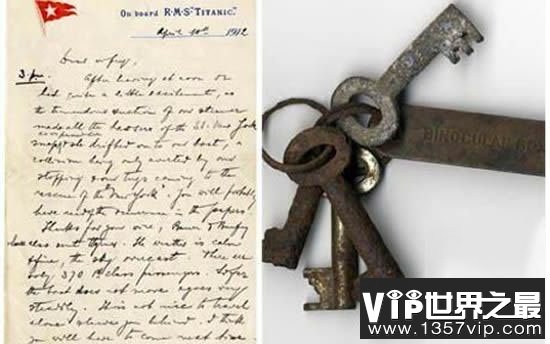 On board R·M·S "TITANIC."
April 10th 1912
3 p.m.
After leaving at noon we
had quite a little excitement, as
the tremendous suction of our steamer
made all the hawsers of the SS. New York
snap & she drifted on to our boat, a
collision being only averted by our
stopping & our tugs coming to the
rescue of the "New York". You will probably
have read of the occurrence in the papers
Thanks for your wire,
class sent theirs. The weather is calm
& fine, the sky overcast. There are
only 370 1st class passengers. So far
the boat does not move & goes very
steadily. It is not nice to travel
alone & leave you behind. I think
you will have to come next time
BINOCULAR BOX
VIP世界之最
www.1357vip.com